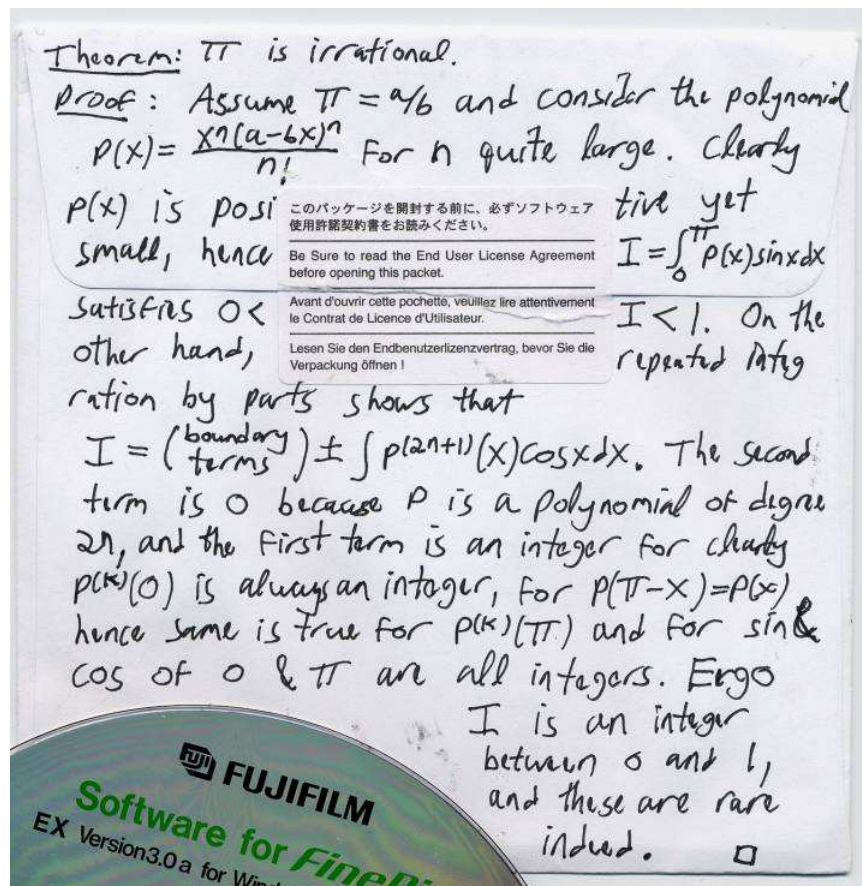 Theorem: π is irrational.
Proof: Assume π = a/b and consider the polynomial
P(x) = xⁿ(a-bx)ⁿ/n! For n quite large. Clearly
P(x) is posi tive yet
small, hence I = ∫₀^π P(x) sinx dx
satisfies 0 < I < 1. On the
other hand, repeated integ
ration by parts shows that
I = (boundary terms) ± ∫ P⁽²ⁿ⁺¹⁾(x) cosx dx. The second
term is 0 because P is a polynomial of degree
2n, and the first term is an integer for clearly
P⁽ᵏ⁾(0) is always an integer, for P(π-x)=P(x)
hence same is true for P⁽ᵏ⁾(π) and for sin &
cos of 0 & π are all integers. Ergo
I is an integer
between 0 and 1,
and these are rare
indeed. □
このパッケージを開封する前に、必ずソフトウェア
使用許諾契約書をお読みください。
Be Sure to read the End User License Agreement
before opening this packet.
Avant d'ouvrir cette pochette, veuillez lire attentivement
le Contrat de Licence d'Utilisateur.
Lesen Sie den Endbenutzerlizenzvertrag, bevor Sie die
Verpackung öffnen !
FUJI FUJIFILM
Software for FinePi
EX Version3.0a for Wind